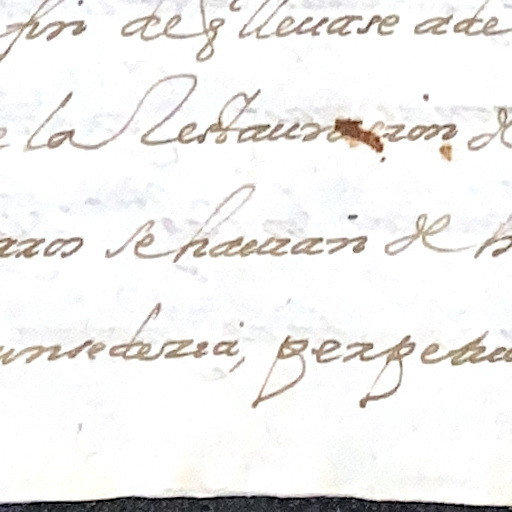 fin de q̃ lleuase ade
e la Restauracion de
aros se hauian de h
un se dezia, perpetu